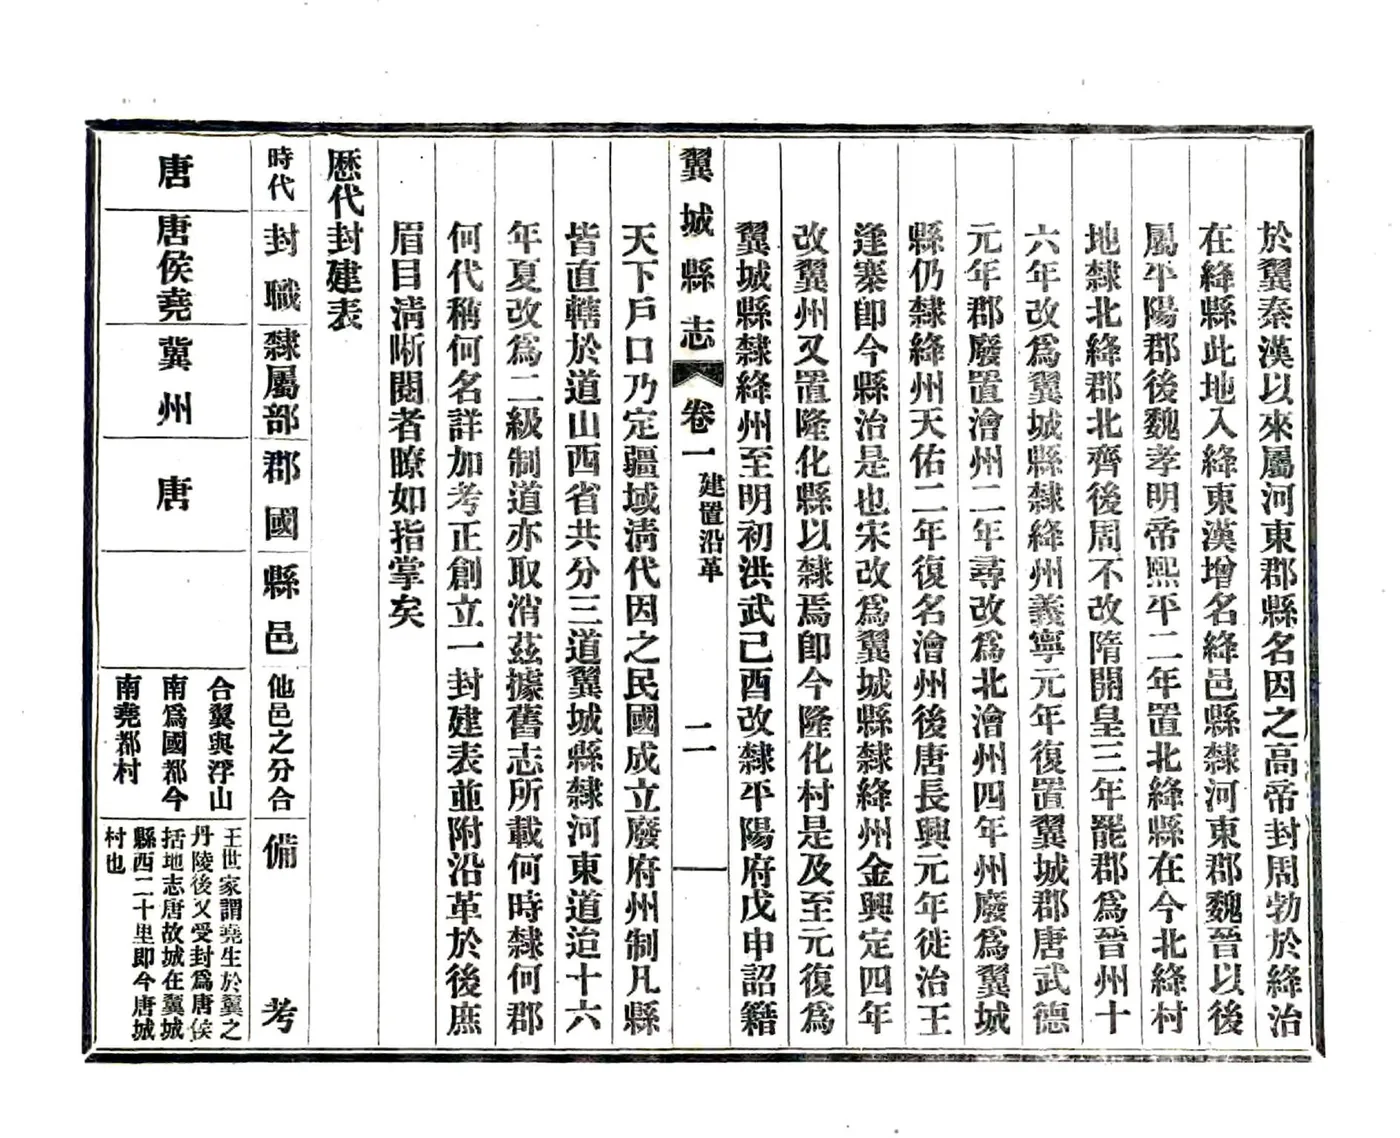 於翼秦漢以來屬河東郡縣名因之高帝封周勃於絳治
在絳縣此地入絳東漢增名絳邑縣隸河東郡魏晉以後
屬平陽郡後魏孝明帝熙平二年置北絳縣在今北絳村
地隸北絳郡北齊後周不改隋開皇三年罷郡爲晉州十
六年改爲翼城縣隸絳州義寧元年復置翼城郡唐武德
元年郡廢置澮州二年尋改爲北澮州四年州廢爲翼城
縣仍隸絳州天佑二年復名澮州後唐長興元年徙治王
逢寨卽今縣治是也宋改爲翼城縣隸絳州金興定四年
改翼州又置隆化縣以隸焉卽今隆化村是及至元復爲
翼城縣隸絳州至明初洪武己酉改隸平陽府戊申詔籍
翼城縣志 卷一 建置沿革 二
天下戶口乃定疆域淸代因之民國成立廢府州制凡縣
皆直轄於道山西省共分三道翼城縣隸河東道迨十六
年夏改爲二級制道亦取消茲據舊志所載何時隸何郡
何代稱何名詳加考正創立一封建表並附沿革於後庶
眉目淸晰閱者瞭如指掌矣
歷代封建表
時代 封職 隸屬部 郡國 縣邑 他邑之分合 備考
唐 唐侯堯 冀州 唐
合翼與浮山
南爲國都今
南堯都村
王世家謂堯生於翼之
丹陵後又受封爲唐侯
括地志唐故城在翼城
縣西二十里即今唐城
村也